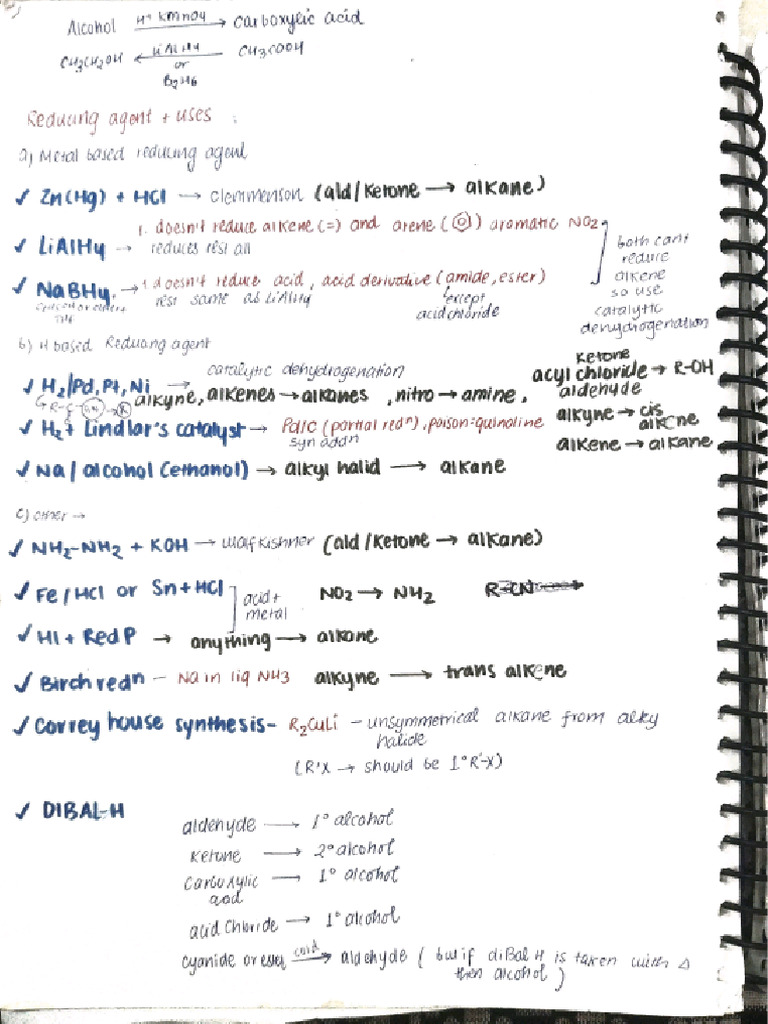 Alcohol —H⁺ KMnO4→ Carboxylic acid
CH3CH2OH ←LiAlH4 or B2H6— CH3COOH
Reducing agent + uses :
a) Metal based reducing agent
✓ Zn(Hg) + HCl → clemmenson (ald/Ketone → alkane)
1. doesn't reduce alkene (=) and arene (⌬) aromatic NO2
✓ LiAlH4 → reduces rest all
both cant
reduce
alkene
so use
catalytic
dehydrogenation
✓ NaBH4 → 1. doesn't reduce acid, acid derivative (amide, ester)
rest same as LiAlH4
except
acid chloride
b) H based Reducing agent
✓ H2/Pd, Pt, Ni → catalytic dehydrogenation
alkyne, alkenes → alkanes, nitro → amine,
Ketone
acyl chloride → R-OH
aldehyde
alkyne → cis
alkene
alkene → alkane
✓ H2 + Lindlar's catalyst → Pd/C (partial redⁿ), poison = quinoline
syn addn
✓ Na/ alcohol (ethanol) → alkyl halid → alkane
c) other →
✓ NH2-NH2 + KOH → wolfkishner (ald/Ketone → alkane)
✓ Fe/HCl or Sn+HCl ] acid + metal NO2 → NH2
✓ HI + Red P → anything → alkane
✓ Birch redn - Na in liq NH3 alkyne → trans alkene
✓ Correy house synthesis - R2CuLi - unsymmetrical alkane from alky
halide
(R'X → should be 1° R'-X)
✓ DIBAL-H
aldehyde → 1° alcohol
Ketone → 2° alcohol
Carboxylic → 1° alcohol
acid
acid Chloride → 1° alcohol
cyanide or ester —cold→ aldehyde ( but if diBal H is taken with Δ
then alcohol )